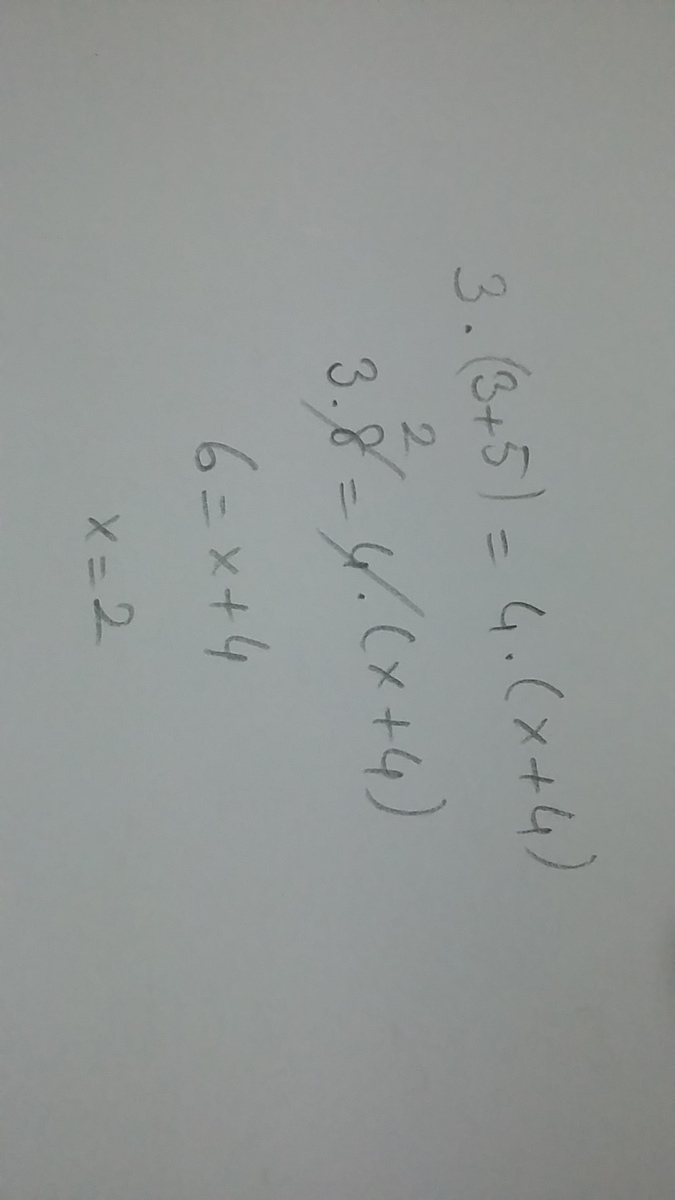 3.(3+5) = 4.(x+4)
2
3.8 = 4.(x+4)
6 = x+4
x = 2